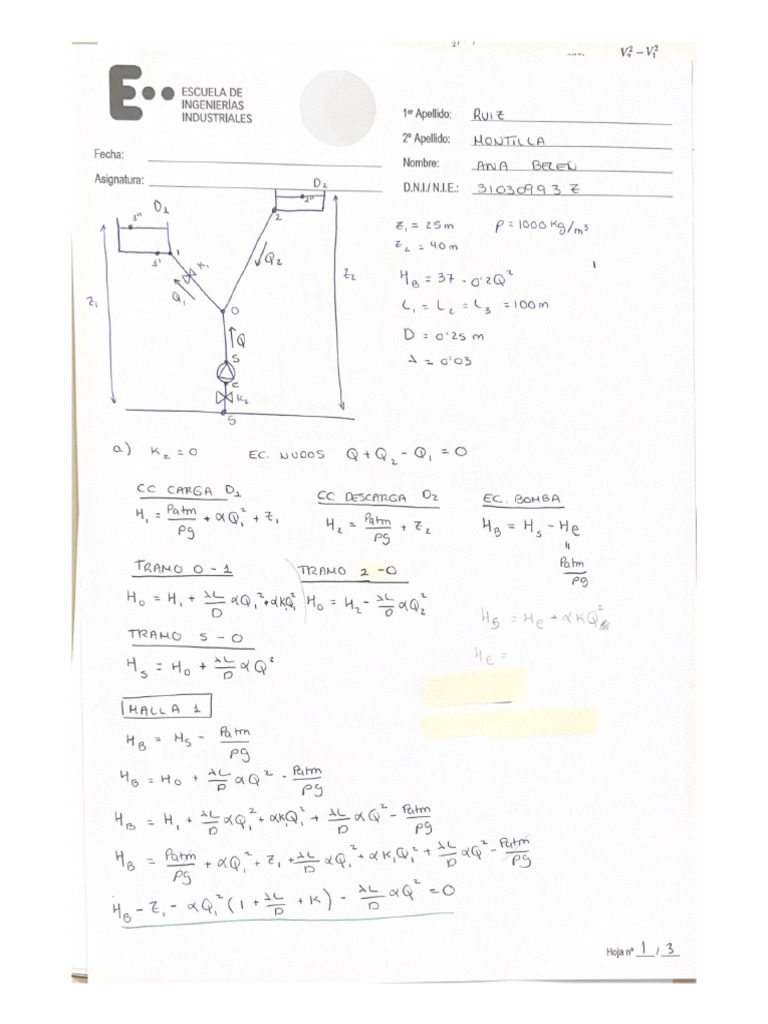 V₂² - V₁²
ESCUELA DE
INGENIERÍAS
INDUSTRIALES
1er Apellido: RUIZ
2º Apellido: MONTILLA
Nombre: ANA BELEN
D.N.I./ N.I.E.: 31030993 Z
Fecha:
Asignatura:
D₁
1''
1'
1
K₁
Q₁
Z₁
D₂
2''
2
Q₂
Z₂
O
Q
S
e
K₂
S
Z₁ = 25 m ρ = 1000 kg/m³
Z₂ = 40 m
H_B = 37 - 0'2Q²
L₁ = L₂ = L₃ = 100 m
D = 0'25 m
λ = 0'03
a) K₂ = 0 EC. NUDOS Q + Q₂ - Q₁ = 0
CC CARGA D₁
H₁ = Patm/ρg + αQ₁² + Z₁
CC DESCARGA D₂
H₂ = Patm/ρg + Z₂
EC. BOMBA
H_B = H_S - H_e
"
Patm/ρg
TRAMO 0 - 1
H₀ = H₁ + λL/D αQ₁² + αKQ₁²
TRAMO 2 - 0
H₀ = H₂ - λL/D αQ₂²
H_S = H_e + αKQ²
H_e =
TRAMO S - 0
H_S = H₀ + λL/D αQ²
MALLA 1
H_B = H_S - Patm/ρg
H_B = H₀ + λL/D αQ² - Patm/ρg
H_B = H₁ + λL/D αQ₁² + αK₁Q₁² + λL/D αQ² - Patm/ρg
H_B = Patm/ρg + αQ₁² + Z₁ + λL/D αQ₁² + αK₁Q₁² + λL/D αQ² - Patm/ρg
H_B - Z₁ - αQ₁² (1 + λL/D + K) - λL/D αQ² = 0
Hoja nº 1 / 3